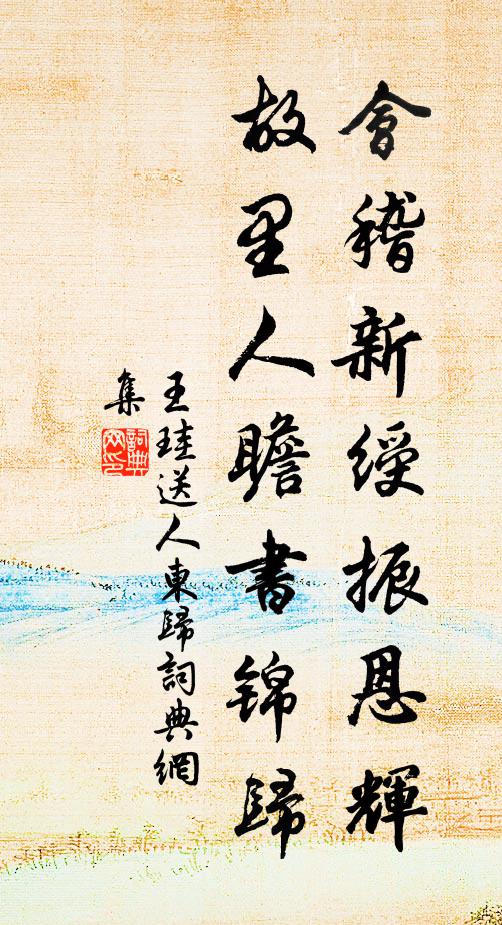 會稽新綬振恩輝
故里人瞻書錦歸
王珪送人東歸詞典網
集
詞典網印